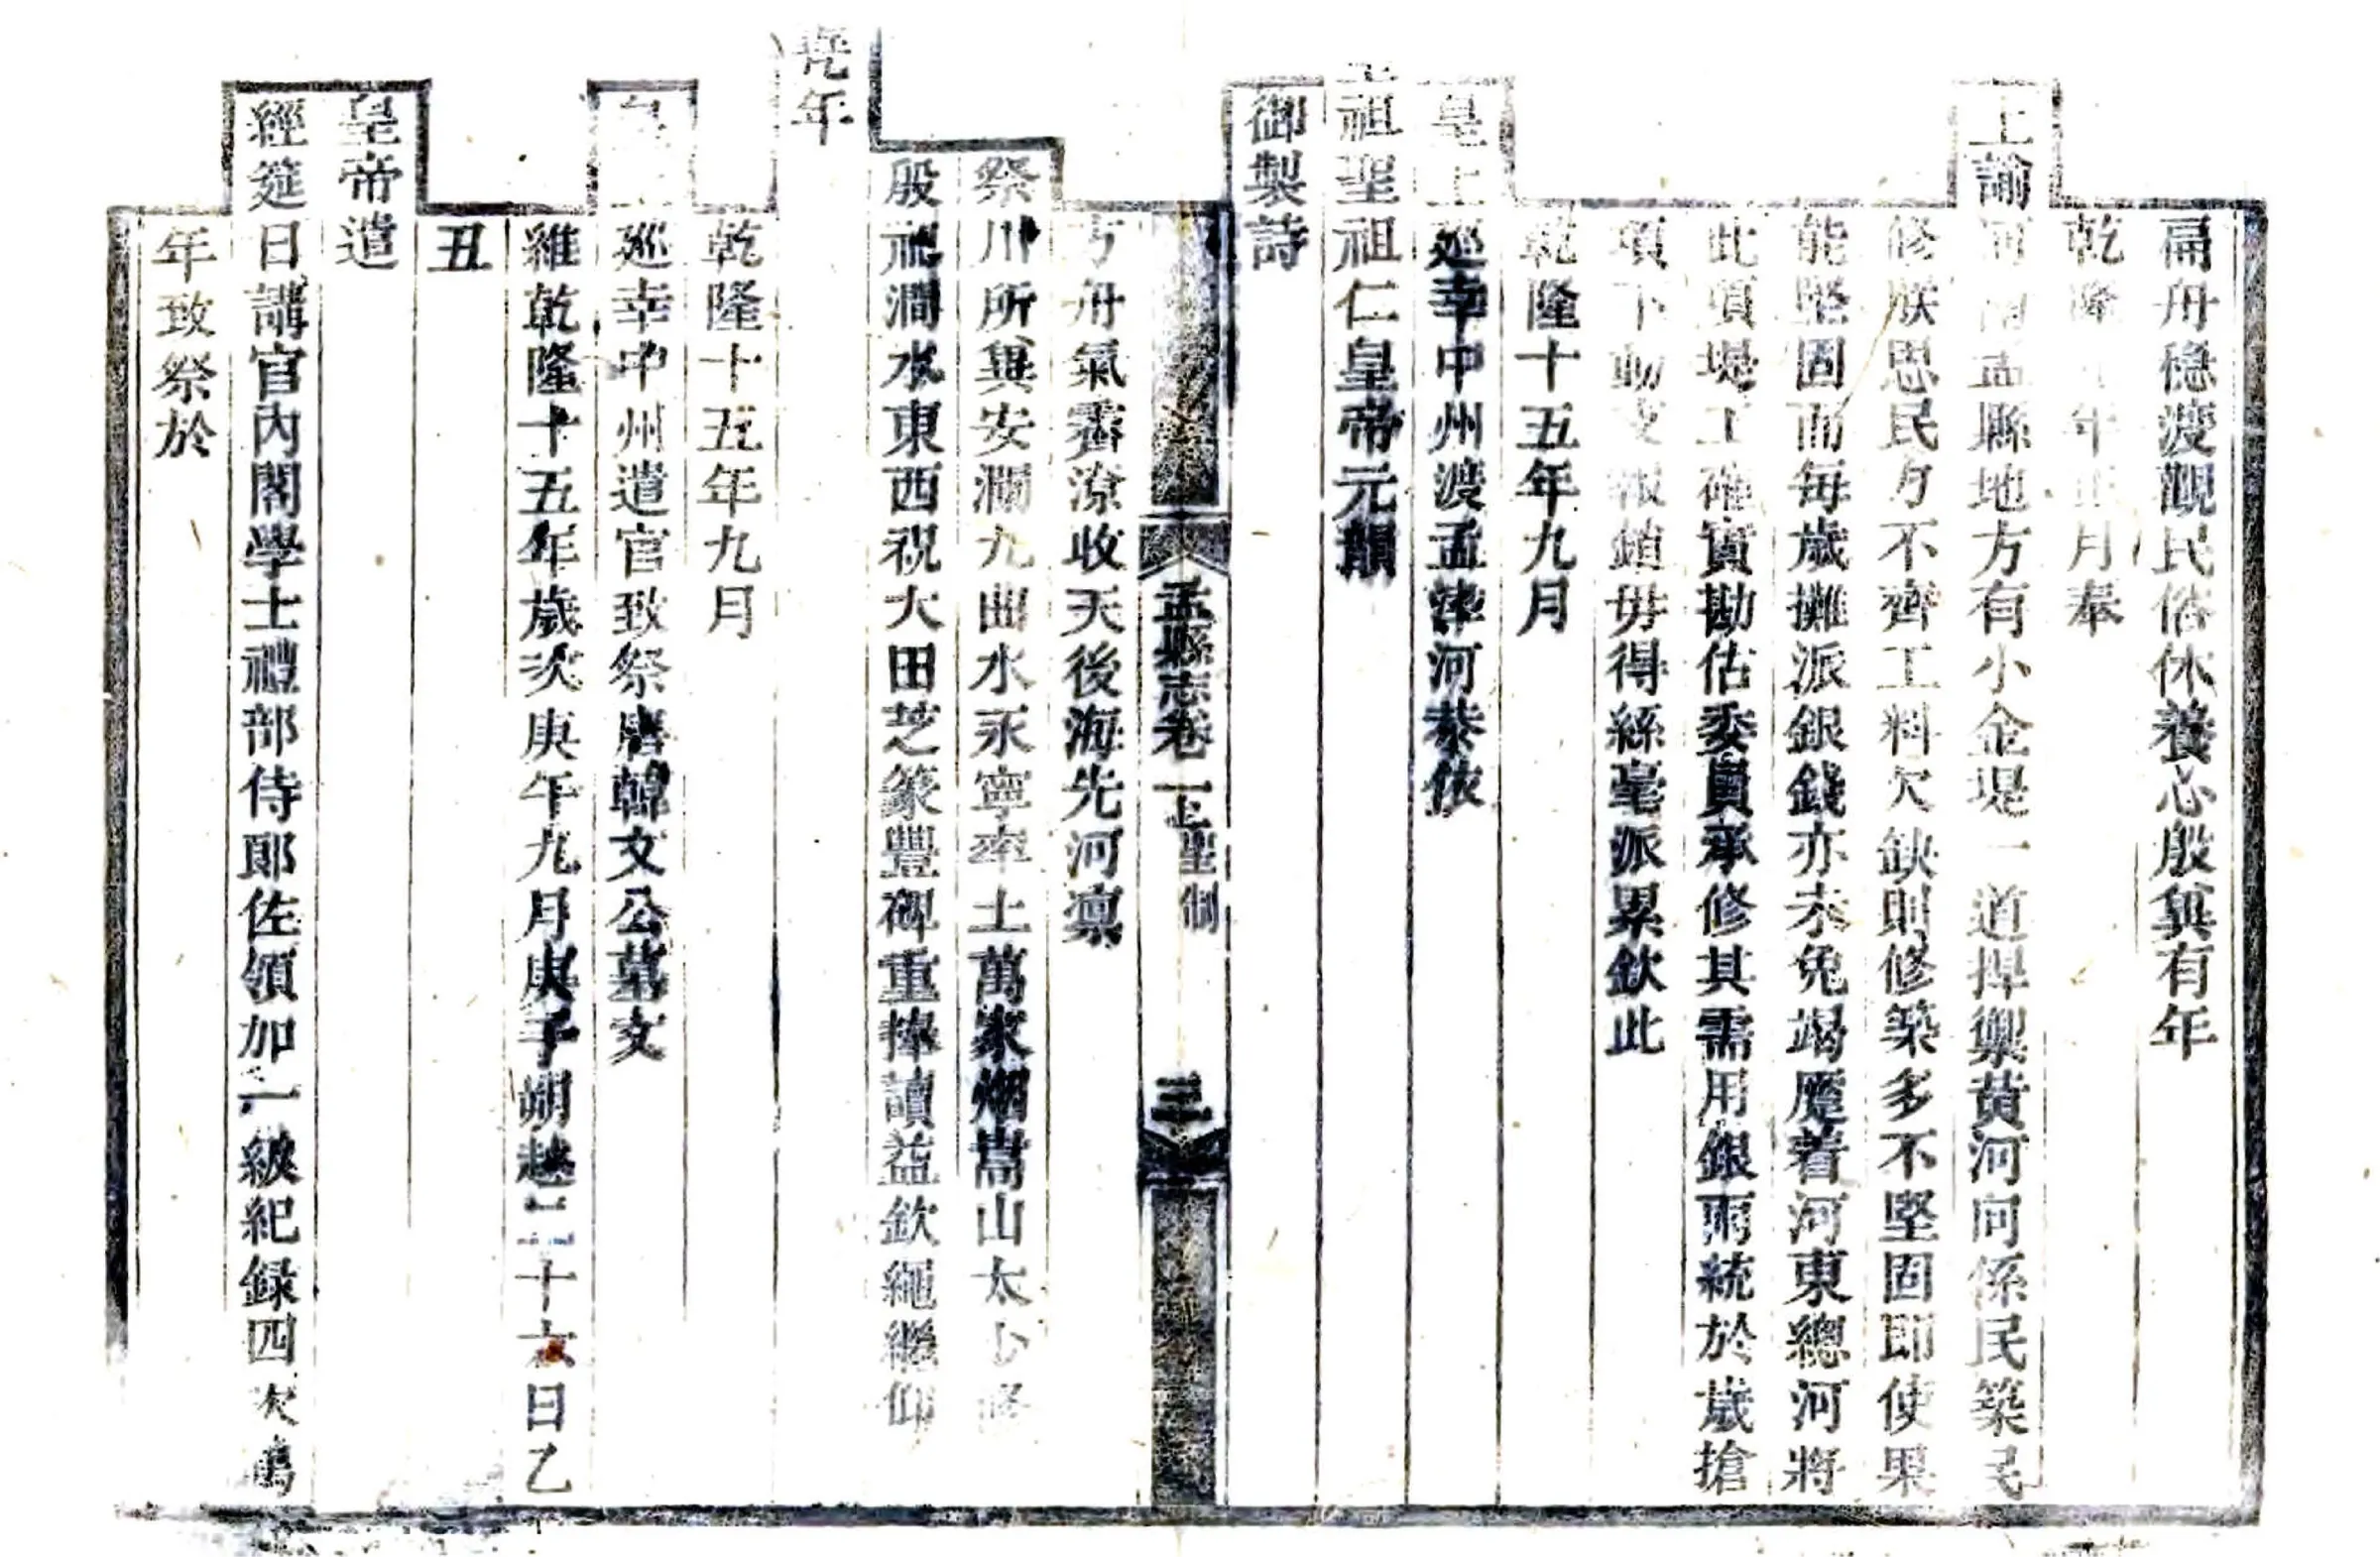 扁舟穩渡觀民俗休養志殷兾有年
乾隆年正月奉
上諭河南孟縣地方有小金堤一道捍禦黃河向係民築民
修朕思民力不齊工料欠缺則修築多不堅固即使果
能堅固而每歲攤派銀錢亦未免竭蹷着河東總河將
此項堤工確實勘估委員承修其需用銀兩統於歲搶
項下動支報銷毋得絲毫派累欽此
乾隆十五年九月
皇上廵幸中州渡孟津河恭依
聖祖仁皇帝元韻
御製詩
方舟氣霽潦收天後海先河凛
祭川所兾安瀾九曲水永寧率土萬家烟嵩山太少
殷瀍澗水東西祝大田芝篆豐碑重捧讀益欽繩繼仰
堯年
乾隆十五年九月
皇廵幸中州遣官致祭唐韓文公墓文
維乾隆十五年歲次庚午九月庚子朔越二十六日乙
丑
皇帝遣
經筵日講官內閣學士禮部侍郎佐領加一級紀録四次鶴
年致祭於
孟縣志卷一上 聖制 三